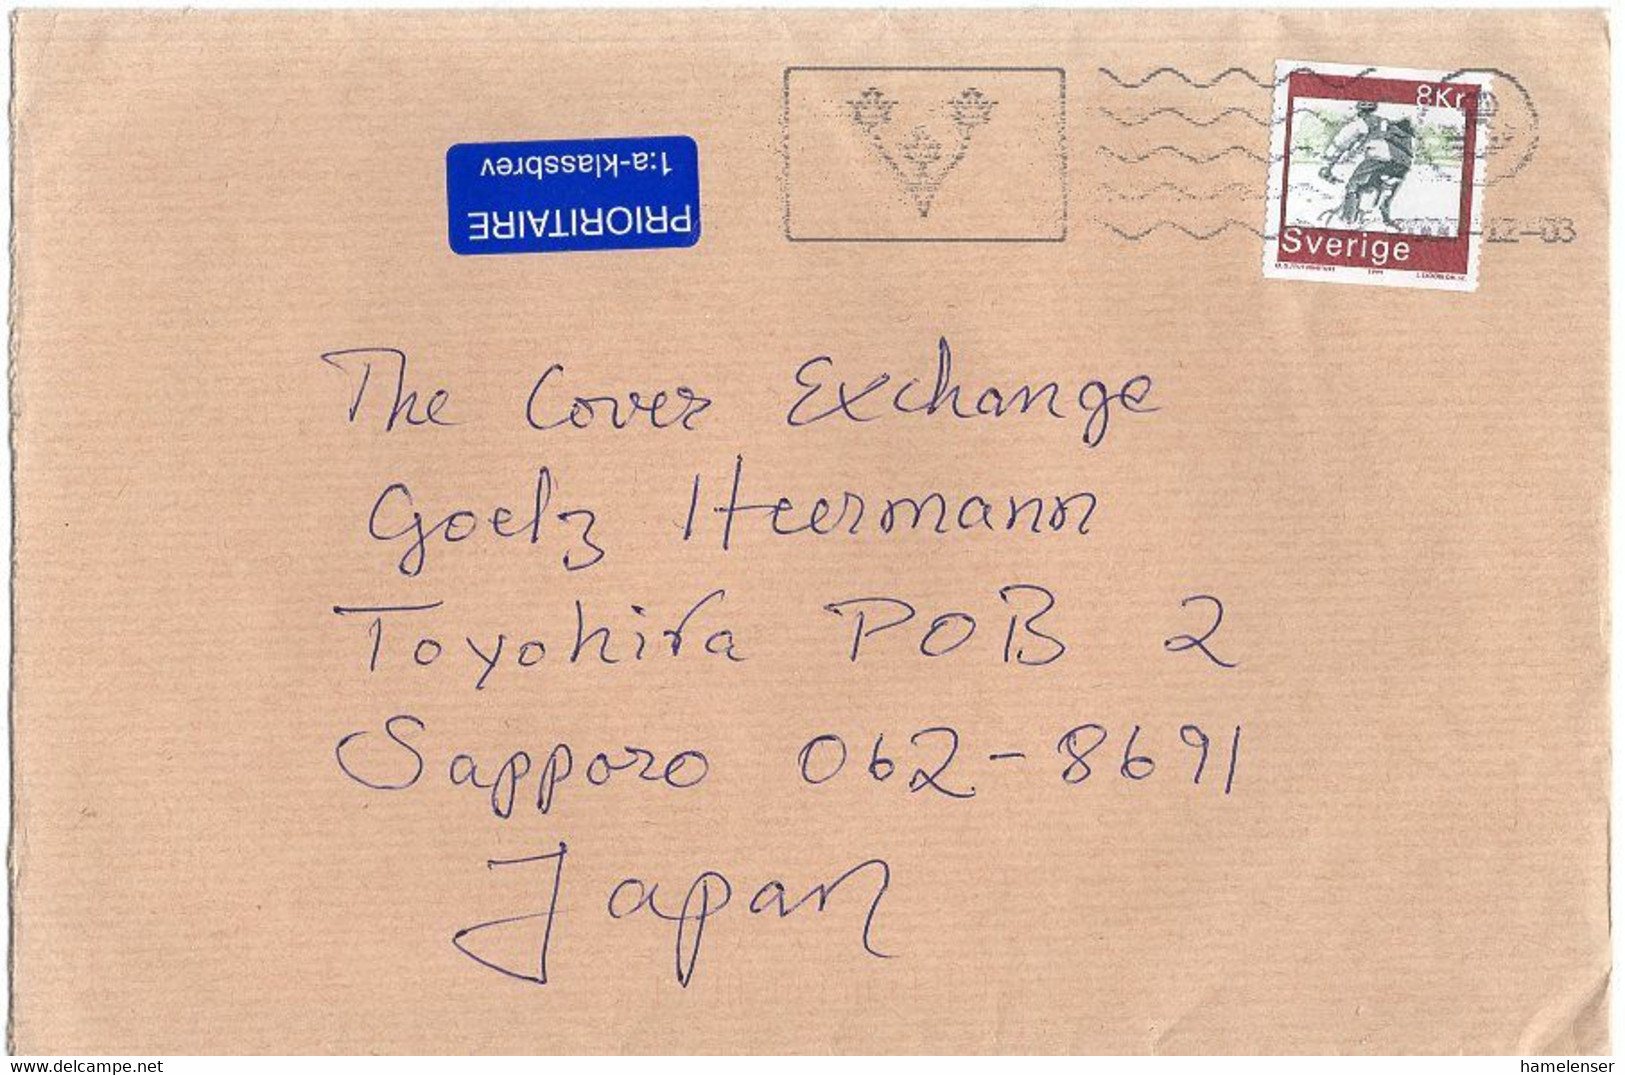 1:a-klassbrev
PRIORITAIRE
8Kr
Sverige
12-03
The Cover Exchange
Goelz Heermann
Toyohira POB 2
Sapporo 062-8691
Japan
www.delcampe.net
hamelenser